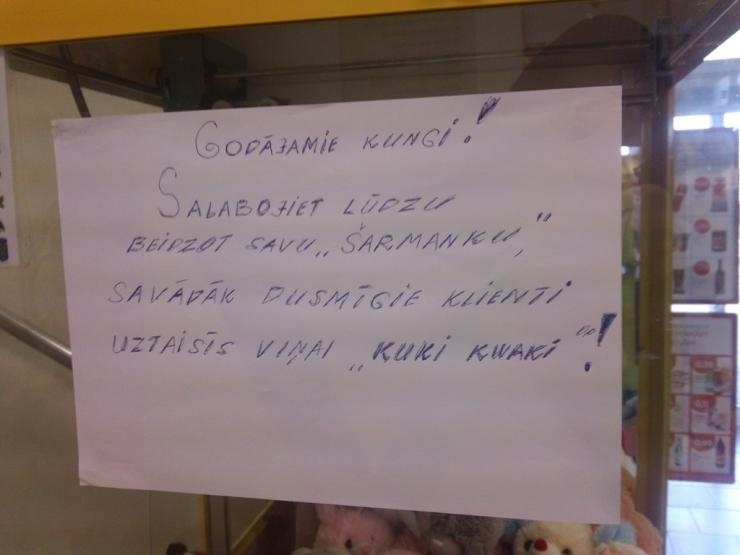 GODĀJAMIE KUNGI!
SALABOJIET LŪDZU
BEIDZOT SAVU „ŠARMANKU,"
SAVĀDĀK DUSMĪGIE KLIENTI
UZTAISĪS VIŅAI „KUKI KWAKI"!